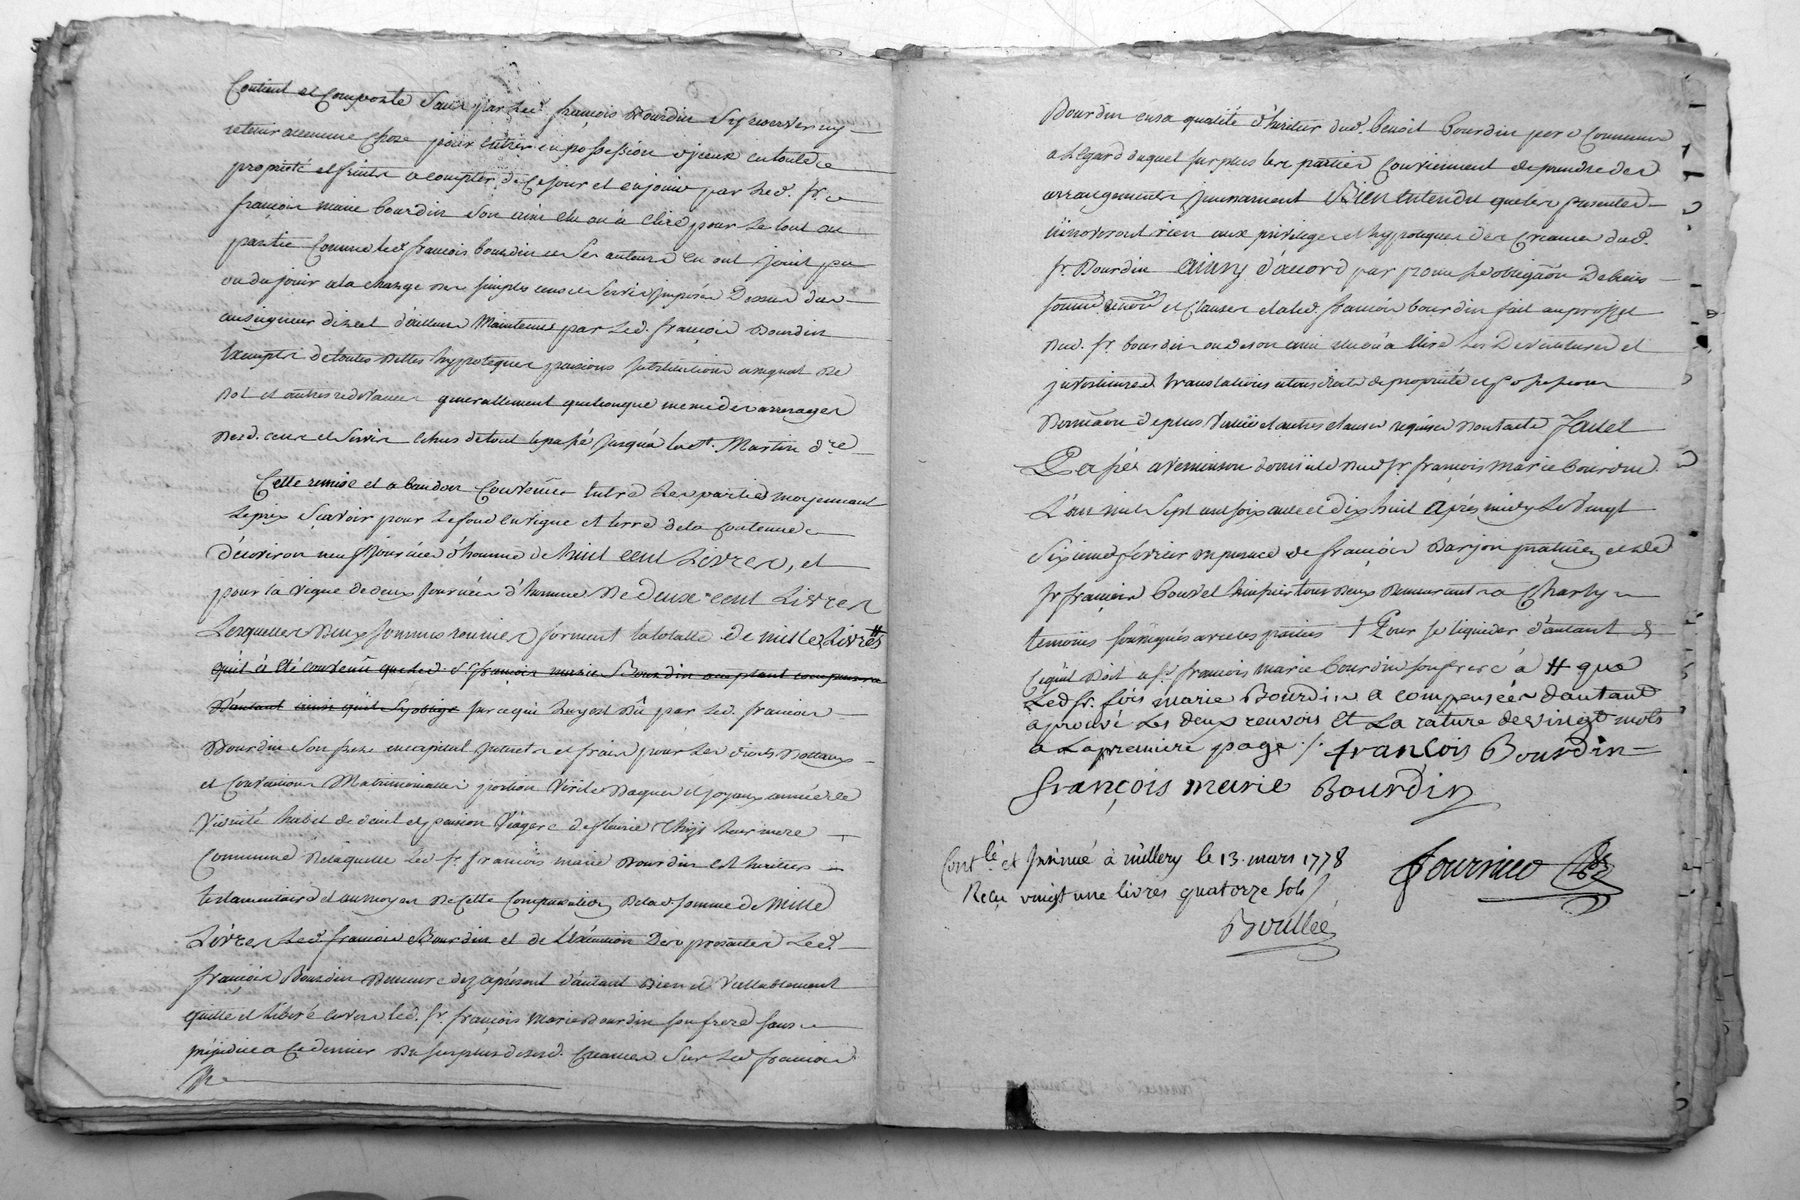 Contient et Comporte sans par led. françois Bourdin sy reserver ny
retenir aucune chose pour entrer en possession et jouir en toute
proprieté et fruits a compter de ce jour et en jouir par led. sr.
françois marie bourdin son ami elu ou a elire pour le tout ou
partie comme led. francois bourdin et ses auteurs en ont jouit pu
ou du jouir a la charge des simples cens et servis imposés Dessus dus
au seigneur direct d'ailleurs Maintenus par led. françois Bourdin
Exempts de toutes dettes hypoteques pensions substitutions
dot et autres redevances generallement quelconque meme des arrerages
desd. cens et servis echus de tout le passé jusqu'a la st. Martin dre
Cette remise et abandon Convenüe entre les parties moyennant
le prix sçavoir pour le fond en vigne et terre de la contenue
d'environ neuf journées d'homme de huit cent Livres, et
pour la vigne de deux journées d'homme de deux cent Livres
Lesquelles deux sommes reunies forment la totalle de mille Livres #
qu'il a été convenü que led. sr françois marie Bourdin acceptant compensera
D'autant ainsi qu'il s'y oblige sur ce qui luy est dû par led. francois
Bourdin son frere en capital interets et frais pour les droits dottaux
et Conventions Matrimonialles portion virile bagues et joyaux année de
viduité habit de deuil et pension viagere de leur mere
Commune de laquelle led. sr. francois marie Bourdin est heritier
testamentaire et au moyen de cette Compensation de la d. somme de mille
Livres led. francois Bourdin et de l'Exécution des presentes led.
françois Bourdin demeure dez apresent d'autant bien et vallablement
quitte et liberé envers led. sr. françois Marie Bourdin son frere sans
préjudice a ce dernier du surplus de sesd. creances sur led. francois
Bourdin en sa qualité d'heritier dud. benoit bourdin pere commun
a l'egard duquel surplus les parties conviennent de prendre des
arrangements Bien Entendu que les presentes
n'innoveront rien aux privileges et hypoteques des creances dud.
sr. Bourdin ainsy d'acord par
et clauses et a led. francois bourdin fait au proffit
dud. sr. bourdin ou de son ami elu ou a elire les Devestitures et
investitures translations a tous droits de proprieté et possession
Donnation de plus valüe et autres clauses requises Dont acte fait et
Passé a domicile dud. sr françois marie bourdin
L'an mil sept cent soixante et dix huit après midy le vingt
sixieme fevrier en presence de françois Barjon praticien et de
sr françois bouvet huissier tous deux demeurant a Charly
temoins soussignés avec les parties † Pour se liquider d'autant de
ce qu'il doit a sr. francois marie bourdin son frere à # que
Led sr. fois marie Bourdin a compensées d'autant
aprouvé les deux renvois et la rature de vingt mots
a la premiere page ./. françois Bourdin
françois marie Bourdin
Contlé et Insinué à millery le 13. mars 1778
Reçu vingt une livres quatorze sols
Boullée